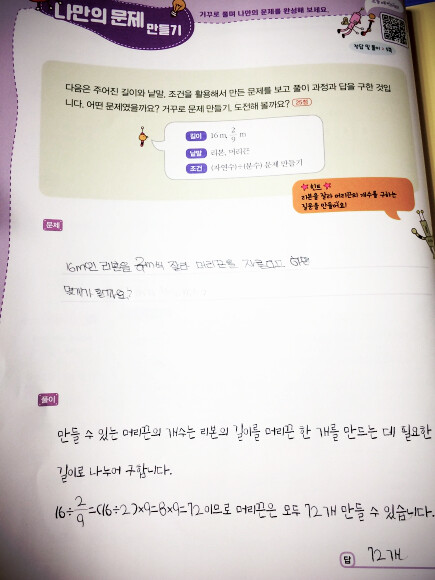 나만의 문제 만들기
거꾸로 풀며 나만의 문제를 완성해 보세요.
다음은 주어진 길이와 낱말, 조건을 활용해서 만든 문제를 보고 풀이 과정과 답을 구한 것입
니다. 어떤 문제였을까요? 거꾸로 문제 만들기, 도전해 볼까요?
길이 16 m, 2/9 m
낱말 리본, 머리끈
조건 (자연수)÷(분수) 문제 만들기
힌트
리본을 잘라 머리끈의 개수를 구하는
질문을 만들어요!
문제
16m인 리본을 잘라 머리끈를
몇개가 될까요?
풀이
만들 수 있는 머리끈의 개수는 리본의 길이를 머리끈 한 개를 만드는 데 필요한
길이로 나누어 구합니다.
16÷2/9=(16÷2)×9=8×9=72이므로 머리끈은 모두 72개 만들 수 있습니다.
답 72개